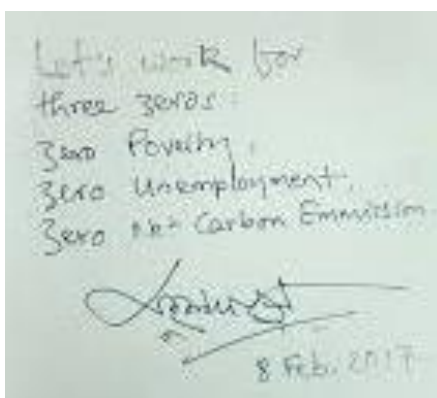 Let's work for
three zeros:
Zero Poverty,
Zero Unemployment,
Zero Net Carbon Emmission
8 Feb. 2017